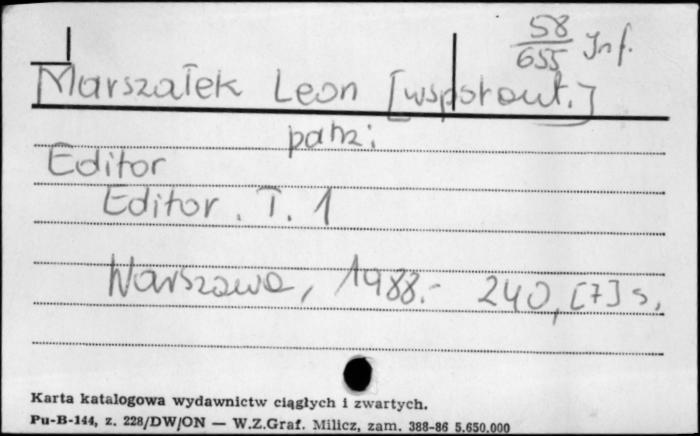 58
655 Inf.
Marszałek Leon [współaut.]
patrz:
Editor
Editor. T. 1
Warszawa, 1988.- 240, [7] s.
Karta katalogowa wydawnictw ciągłych i zwartych.
Pu-B-144, z. 228/DW/ON — W.Z.Graf. Milicz, zam. 388-86 5.650.000